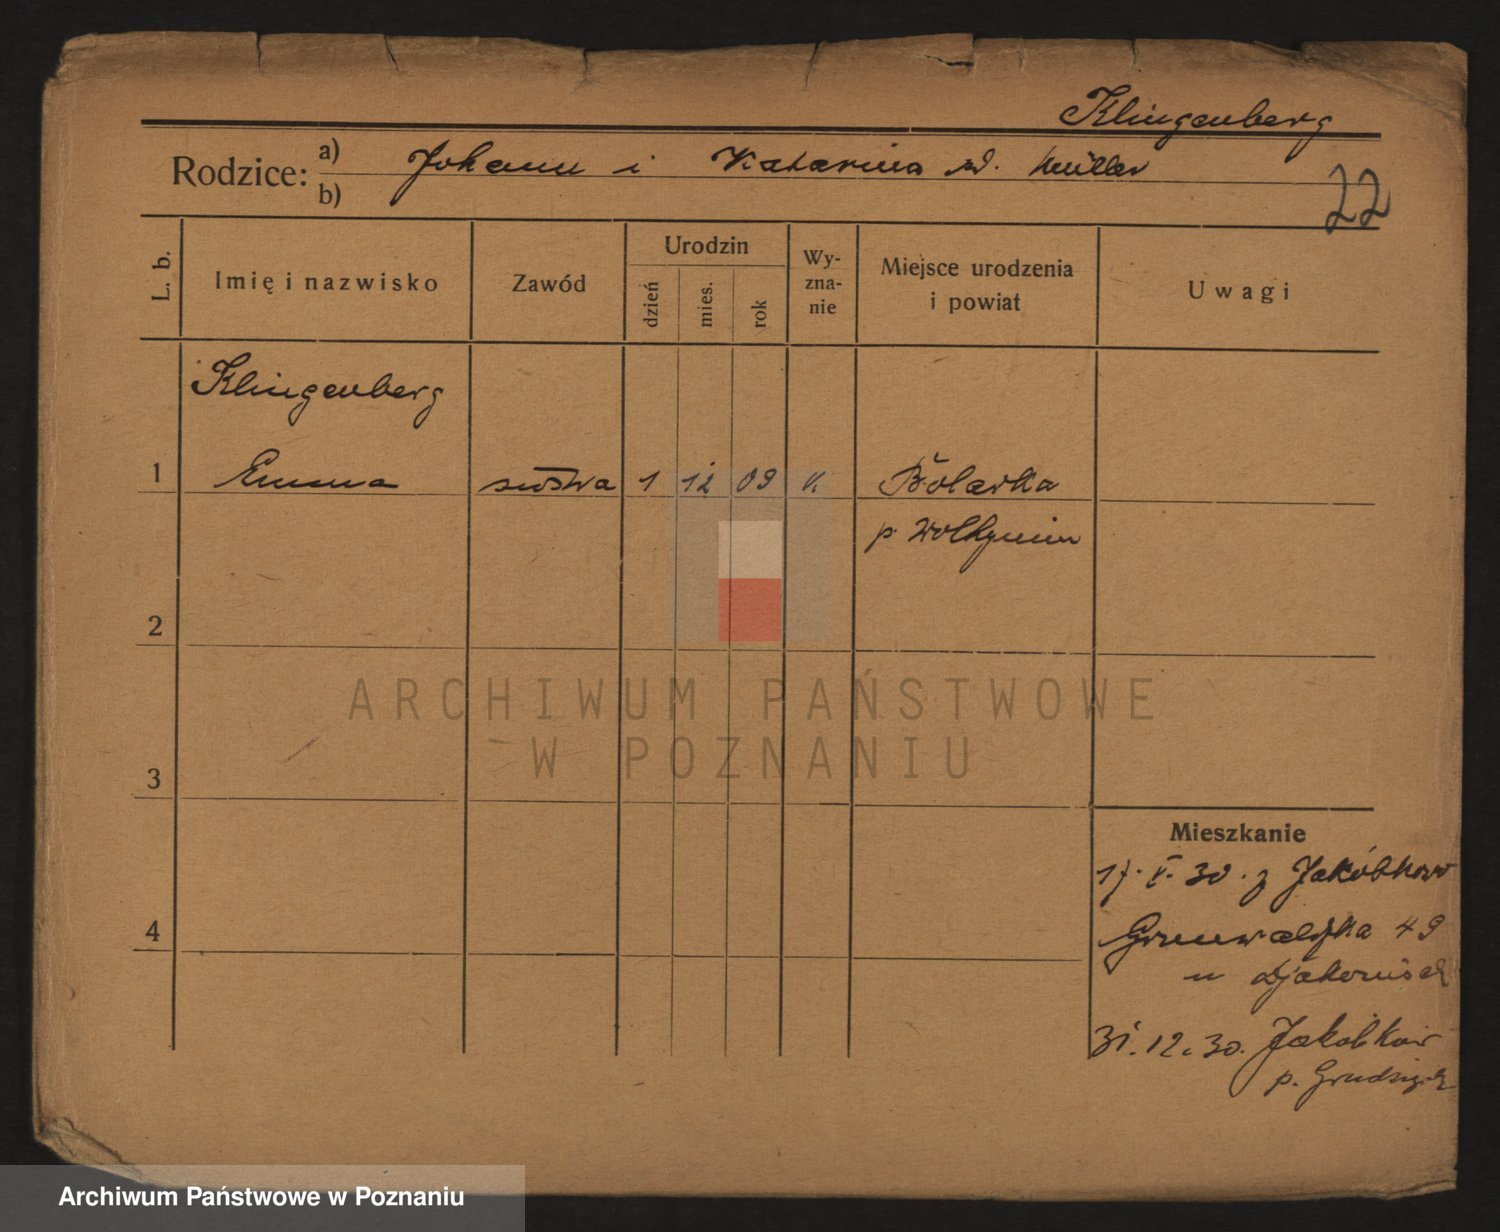 Klingenberg
Rodzice: a) Johann i Katarina zd. Müller
b)
22
L. b.
Imię i nazwisko
Zawód
Urodzin
dzień
mies.
rok
Wy-
zna-
nie
Miejsce urodzenia
i powiat
Uwagi
Klingenberg
1 Emma siostra 1 12 09
p. Wolhynien
2
3
4
Mieszkanie
17. V. 30. z Jakóbkowo
Grunwaldzka 49
u Djakonisek
31. 12. 30. Jakóbkow
p. Grudziądz
ARCHIWUM PAŃSTWOWE
W POZNANIU
Archiwum Państwowe w Poznaniu